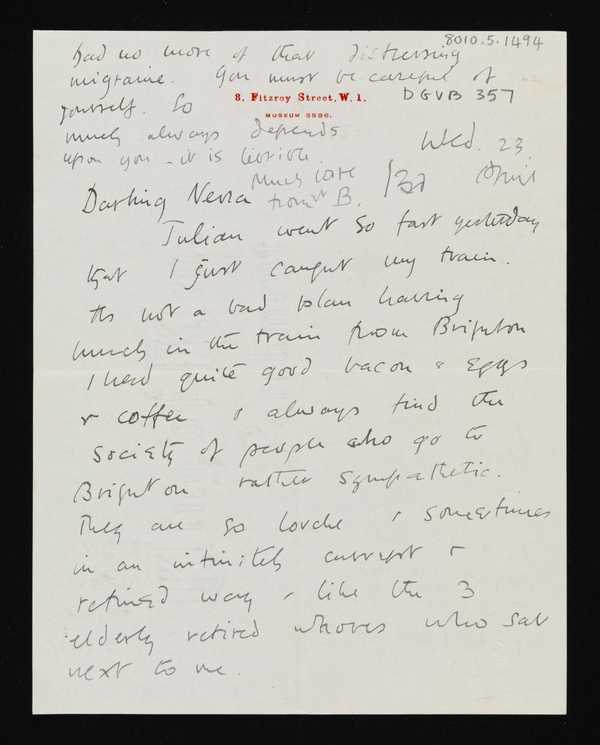 8010.5.1494
had no more of that distressing
migraine. You must be careful of
yourself. So
8. Fitzroy Street, W. 1.
MUSEUM 8596.
DGVB 357
much always depends
upon you - it is terrible.
Wed. 23
April
Much love
from B.
Darling Nessa
Julian went so fast yesterday
that I just caught my train.
Its not a bad plan having
lunch in the train from Brighton
I had quite good bacon & eggs
& coffee & always find the
society of people who go to
Brighton rather sympathetic.
They are so louche & sometimes
in an infinitely corrupt &
refined way - like the 3
elderly retired whores who sat
next to me.